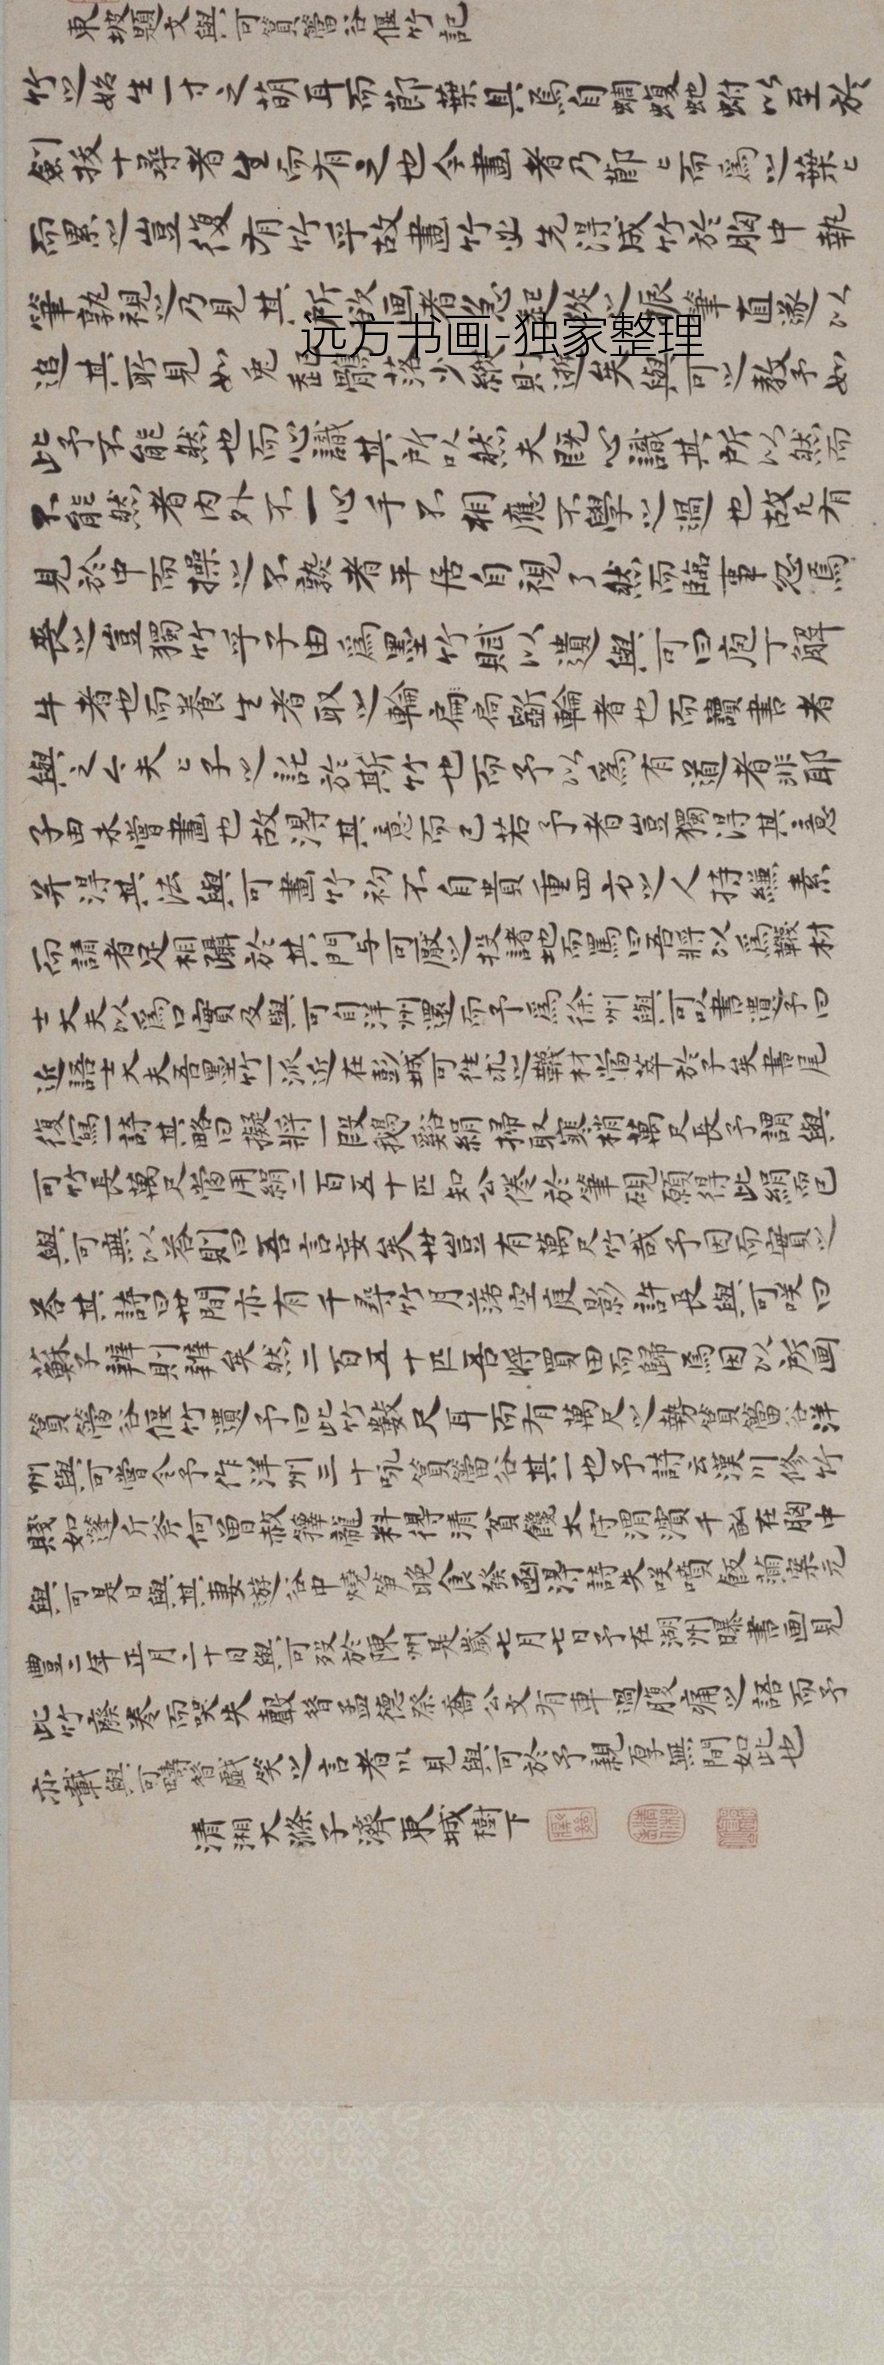 東坡題文與可篔簹谷偃竹記
竹之始生一寸之萌耳而節葉具焉自蜩蝮蛇蚹以至於
劍拔十尋者生而有之也今畫者乃節〻而為之葉〻
而累之豈復有竹乎故畫竹必先得成竹於胸中執
筆孰視之乃見其所欲画者急起從之振筆直遂以
远方书画-独家整理
追其所見如兔起鶻落少縱則逝矣與可之教予如
此予不能然也而心識其所以然夫既心識其所以然而
不能然者內外不一心手不相應不學之過也故凡有
見於中而操之不熟者平居自視了然而臨事忽焉
喪之豈獨竹乎子由為墨竹賦以遺與可曰庖丁解
牛者也而養生者取之輪扁扁斲輪者也而讀書者
與之今夫〻子之託於斯竹也而予以為有道者非耶
子由未嘗畫也故得其意而已若予者豈獨得其意
并得其法與可畫竹初不自貴重四方之人持縑素
而請者足相躡於其門与可厭之投諸地而罵曰吾將以為韈材
士大夫以為口實及與可自洋州還而予為徐州與可以書遺予曰
近語士大夫吾墨竹一派近在彭城可往求之韈材當萃於子矣書尾
復寫一詩其略曰擬將一段鵝谿絹掃取寒梢萬尺長予謂與
可竹長萬尺當用絹二百五十匹知公倦於筆硯願得此絹而已
與可無以答則曰吾言妄矣世豈有萬尺竹哉予因而實之
答其詩曰世間亦有千尋竹月落空庭影許長與可咲曰
蘇子辯則辯矣然二百五十匹吾將買田而歸焉因以所画
篔簹谷偃竹遺予曰此竹數尺耳而有萬尺之勢篔簹谷洋
州與可嘗令予作洋州三十咏篔簹谷其一也予詩云漢川修竹
賤如蓬斤斧何曾赦籜龍料得清貧饞太守渭濱千畝在胸中
與可是日與其妻遊谷中燒筍晚食發函得詩失咲噴飯滿案元
豐二年正月二十日與可歿於陳州是歲七月七日予在湖州曝書画見
此竹廢卷而哭失聲昔孟德祭喬公文有車過腹痛之語而予
亦載與可疇昔戲笑之言者以見與可於予親厚無間如此也
清湘大滌子濟東城樹下